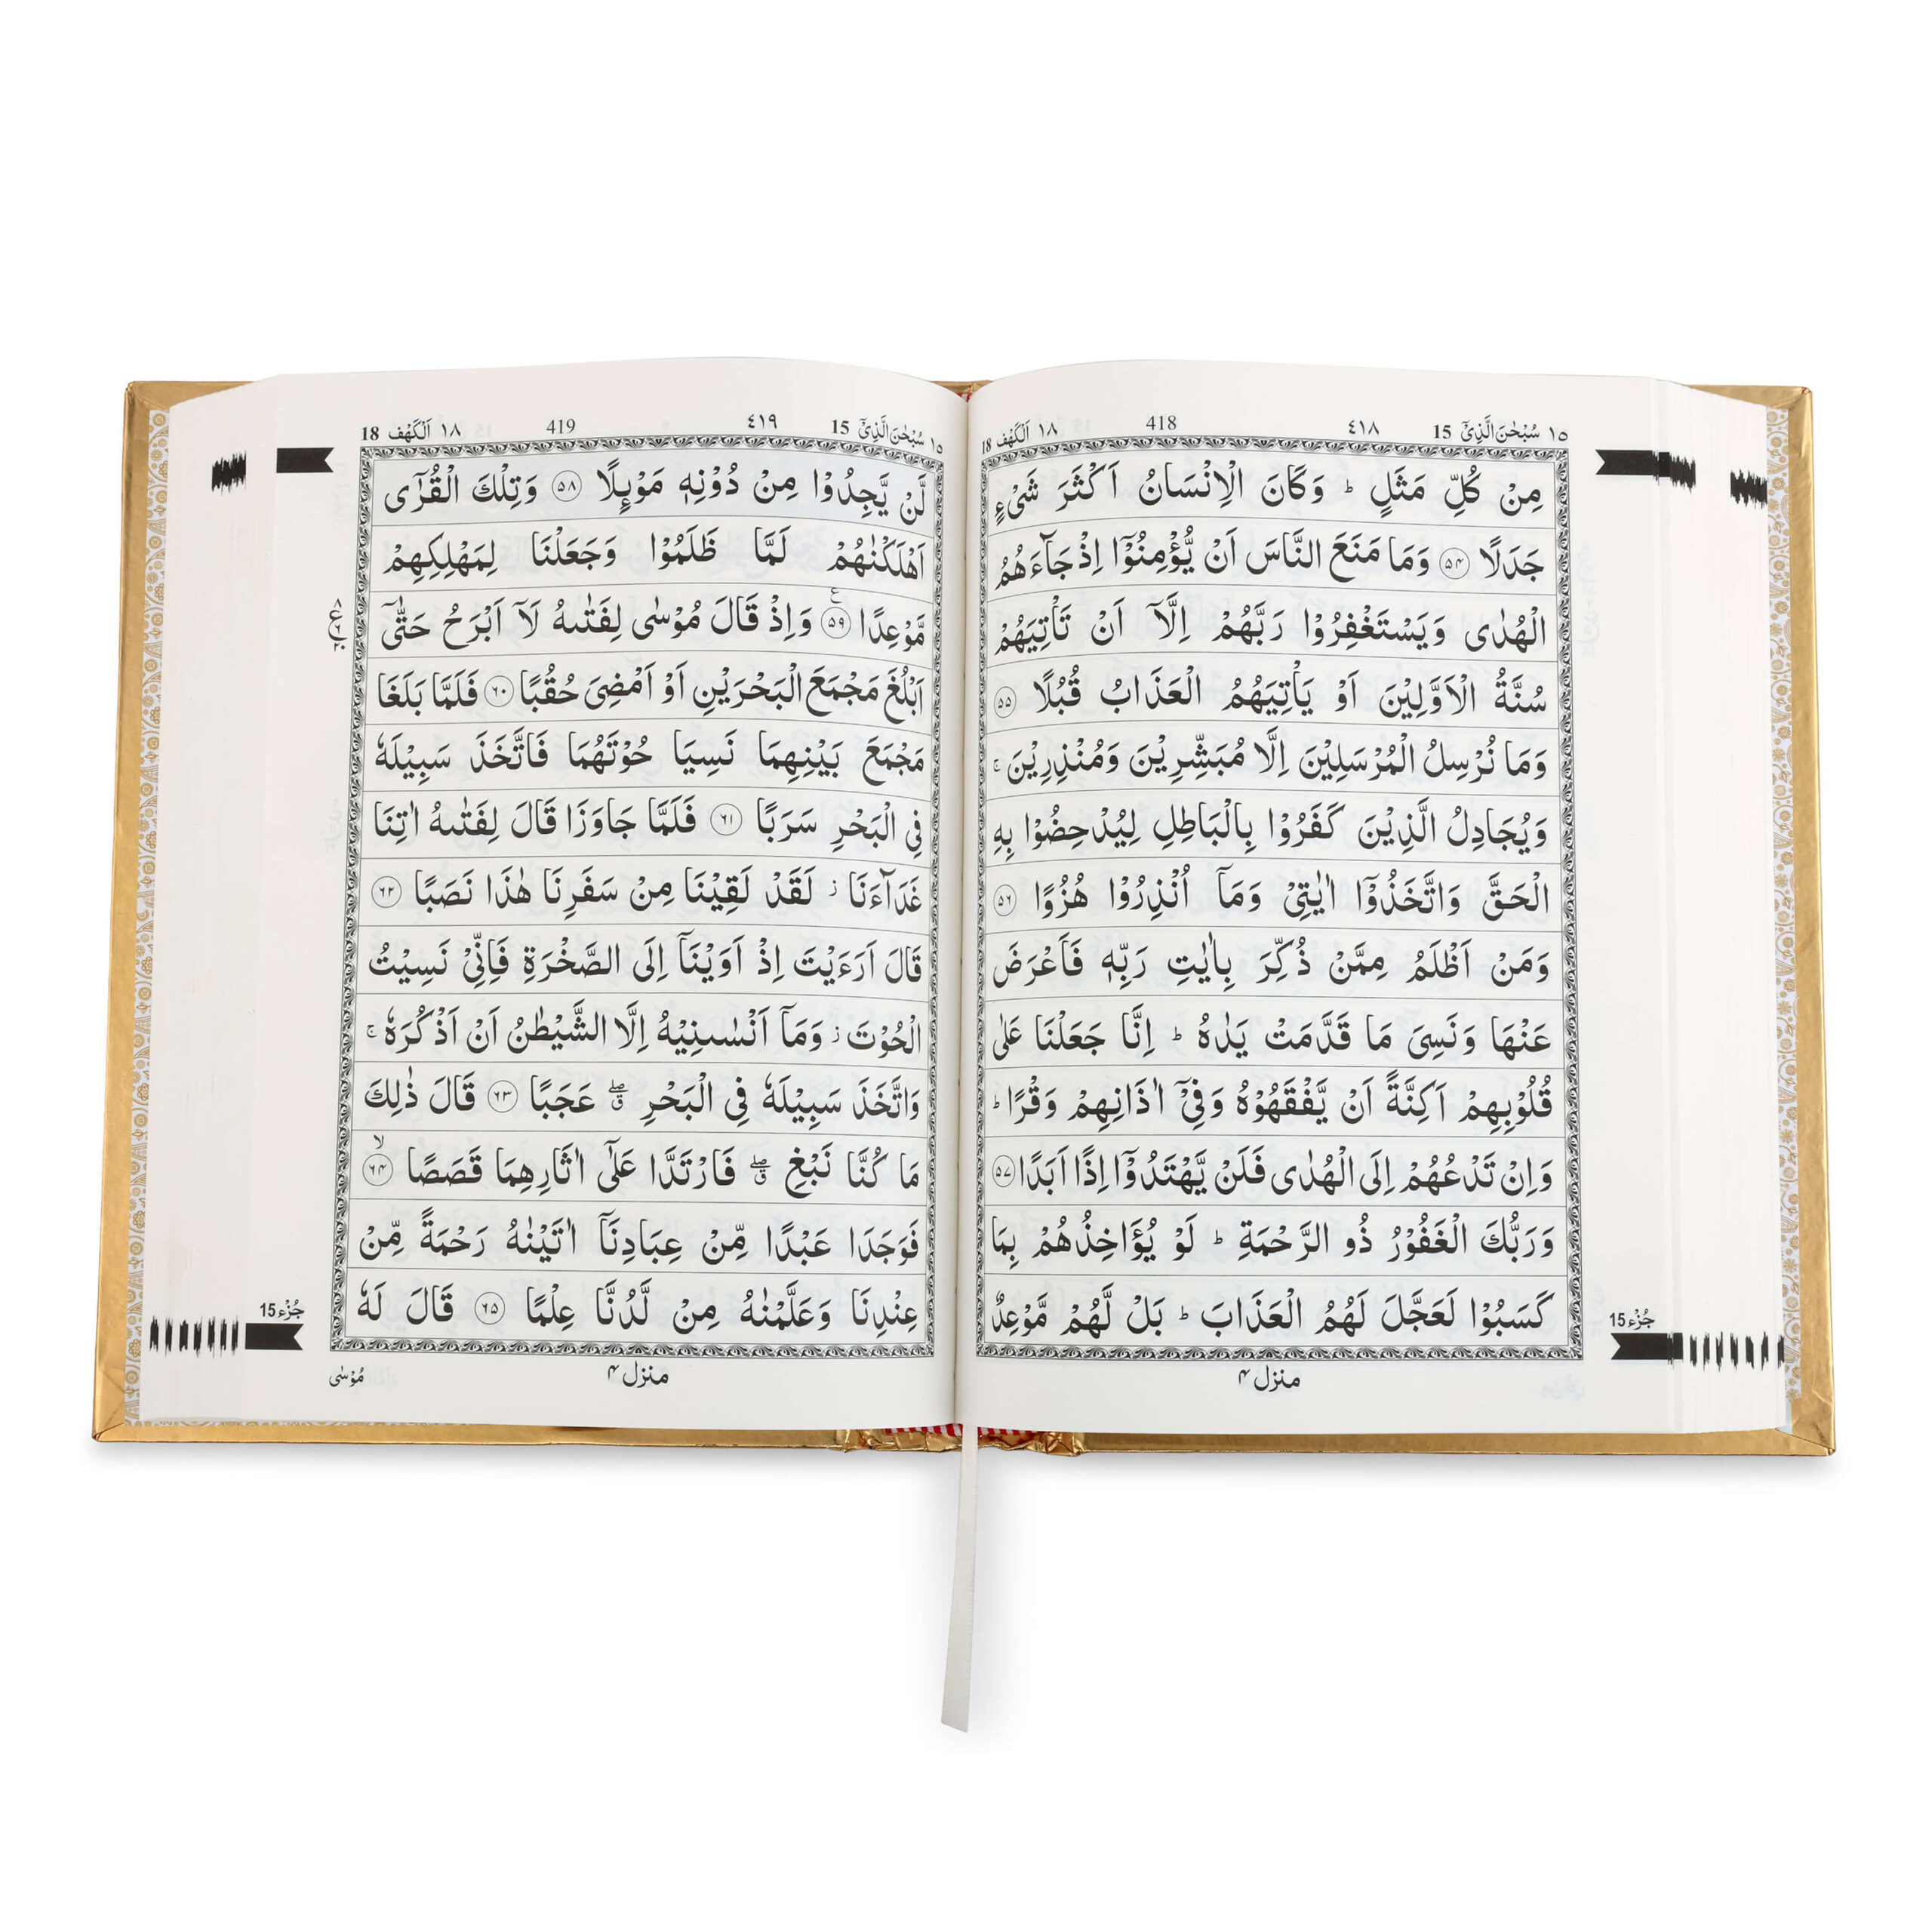 ١٥ سُبْحٰنَ الَّذِیْۤ 15 ٤١٨ 418 ١٨ اَلْكَهْف 18
مِنْ كُلِّ مَثَلٍ ؕ وَكَانَ الْاِنْسَانُ اَكْثَرَ شَیْءٍ
جَدَلًا ۵۴ وَمَا مَنَعَ النَّاسَ اَنْ يُّؤْمِنُوْۤا اِذْ جَآءَهُمُ
الْهُدٰى وَيَسْتَغْفِرُوْا رَبَّهُمْ اِلَّاۤ اَنْ تَاْتِيَهُمْ
سُنَّةُ الْاَوَّلِيْنَ اَوْ يَاْتِيَهُمُ الْعَذَابُ قُبُلًا ۵۵
وَمَا نُرْسِلُ الْمُرْسَلِيْنَ اِلَّا مُبَشِّرِيْنَ وَمُنْذِرِيْنَ ۚ
وَيُجَادِلُ الَّذِيْنَ كَفَرُوْا بِالْبَاطِلِ لِيُدْحِضُوْا بِهِ
الْحَقَّ وَاتَّخَذُوْۤا اٰيٰتِیْ وَمَاۤ اُنْذِرُوْا هُزُوًا ۵۶
وَمَنْ اَظْلَمُ مِمَّنْ ذُكِّرَ بِاٰيٰتِ رَبِّهٖ فَاَعْرَضَ
عَنْهَا وَنَسِیَ مَا قَدَّمَتْ يَدٰهُ ؕ اِنَّا جَعَلْنَا عَلٰى
قُلُوْبِهِمْ اَكِنَّةً اَنْ يَّفْقَهُوْهُ وَفِیْۤ اٰذَانِهِمْ وَقْرًا ؕ
وَاِنْ تَدْعُهُمْ اِلَى الْهُدٰى فَلَنْ يَّهْتَدُوْۤا اِذًا اَبَدًا ۵۷
وَرَبُّكَ الْغَفُوْرُ ذُو الرَّحْمَةِ ؕ لَوْ يُؤَاخِذُهُمْ بِمَا
كَسَبُوْا لَعَجَّلَ لَهُمُ الْعَذَابَ ؕ بَلْ لَّهُمْ مَّوْعِدٌ
جُزْء 15
منزل ۴
١٥ سُبْحٰنَ الَّذِیْۤ 15 ٤١٩ 419 ١٨ اَلْكَهْف 18
لَّنْ يَّجِدُوْا مِنْ دُوْنِهٖ مَوْىِٕلًا ۵۸ وَتِلْكَ الْقُرٰۤى
اَهْلَكْنٰهُمْ لَمَّا ظَلَمُوْا وَجَعَلْنَا لِمَهْلِكِهِمْ
مَّوْعِدًا ۵۹ وَاِذْ قَالَ مُوْسٰى لِفَتٰىهُ لَاۤ اَبْرَحُ حَتّٰۤى
اَبْلُغَ مَجْمَعَ الْبَحْرَيْنِ اَوْ اَمْضِیَ حُقُبًا ۶۰ فَلَمَّا بَلَغَا
مَجْمَعَ بَيْنِهِمَا نَسِيَا حُوْتَهُمَا فَاتَّخَذَ سَبِيْلَهٗ
فِی الْبَحْرِ سَرَبًا ۶۱ فَلَمَّا جَاوَزَا قَالَ لِفَتٰىهُ اٰتِنَا
غَدَآءَنَا ز لَقَدْ لَقِيْنَا مِنْ سَفَرِنَا هٰذَا نَصَبًا ۶۲
قَالَ اَرَءَيْتَ اِذْ اَوَيْنَاۤ اِلَى الصَّخْرَةِ فَاِنِّیْ نَسِيْتُ
الْحُوْتَ ز وَمَاۤ اَنْسٰىنِيْهُ اِلَّا الشَّيْطٰنُ اَنْ اَذْكُرَهٗ ۚ
وَاتَّخَذَ سَبِيْلَهٗ فِی الْبَحْرِ ۖق عَجَبًا ۶۳ قَالَ ذٰلِكَ
مَا كُنَّا نَبْغِ ۖق فَارْتَدَّا عَلٰۤى اٰثَارِهِمَا قَصَصًا ۶۴ۙ
فَوَجَدَا عَبْدًا مِّنْ عِبَادِنَاۤ اٰتَيْنٰهُ رَحْمَةً مِّنْ
عِنْدِنَا وَعَلَّمْنٰهُ مِنْ لَّدُنَّا عِلْمًا ۶۵ قَالَ لَهٗ
جُزْء 15
منزل ۴
مُوْسٰى